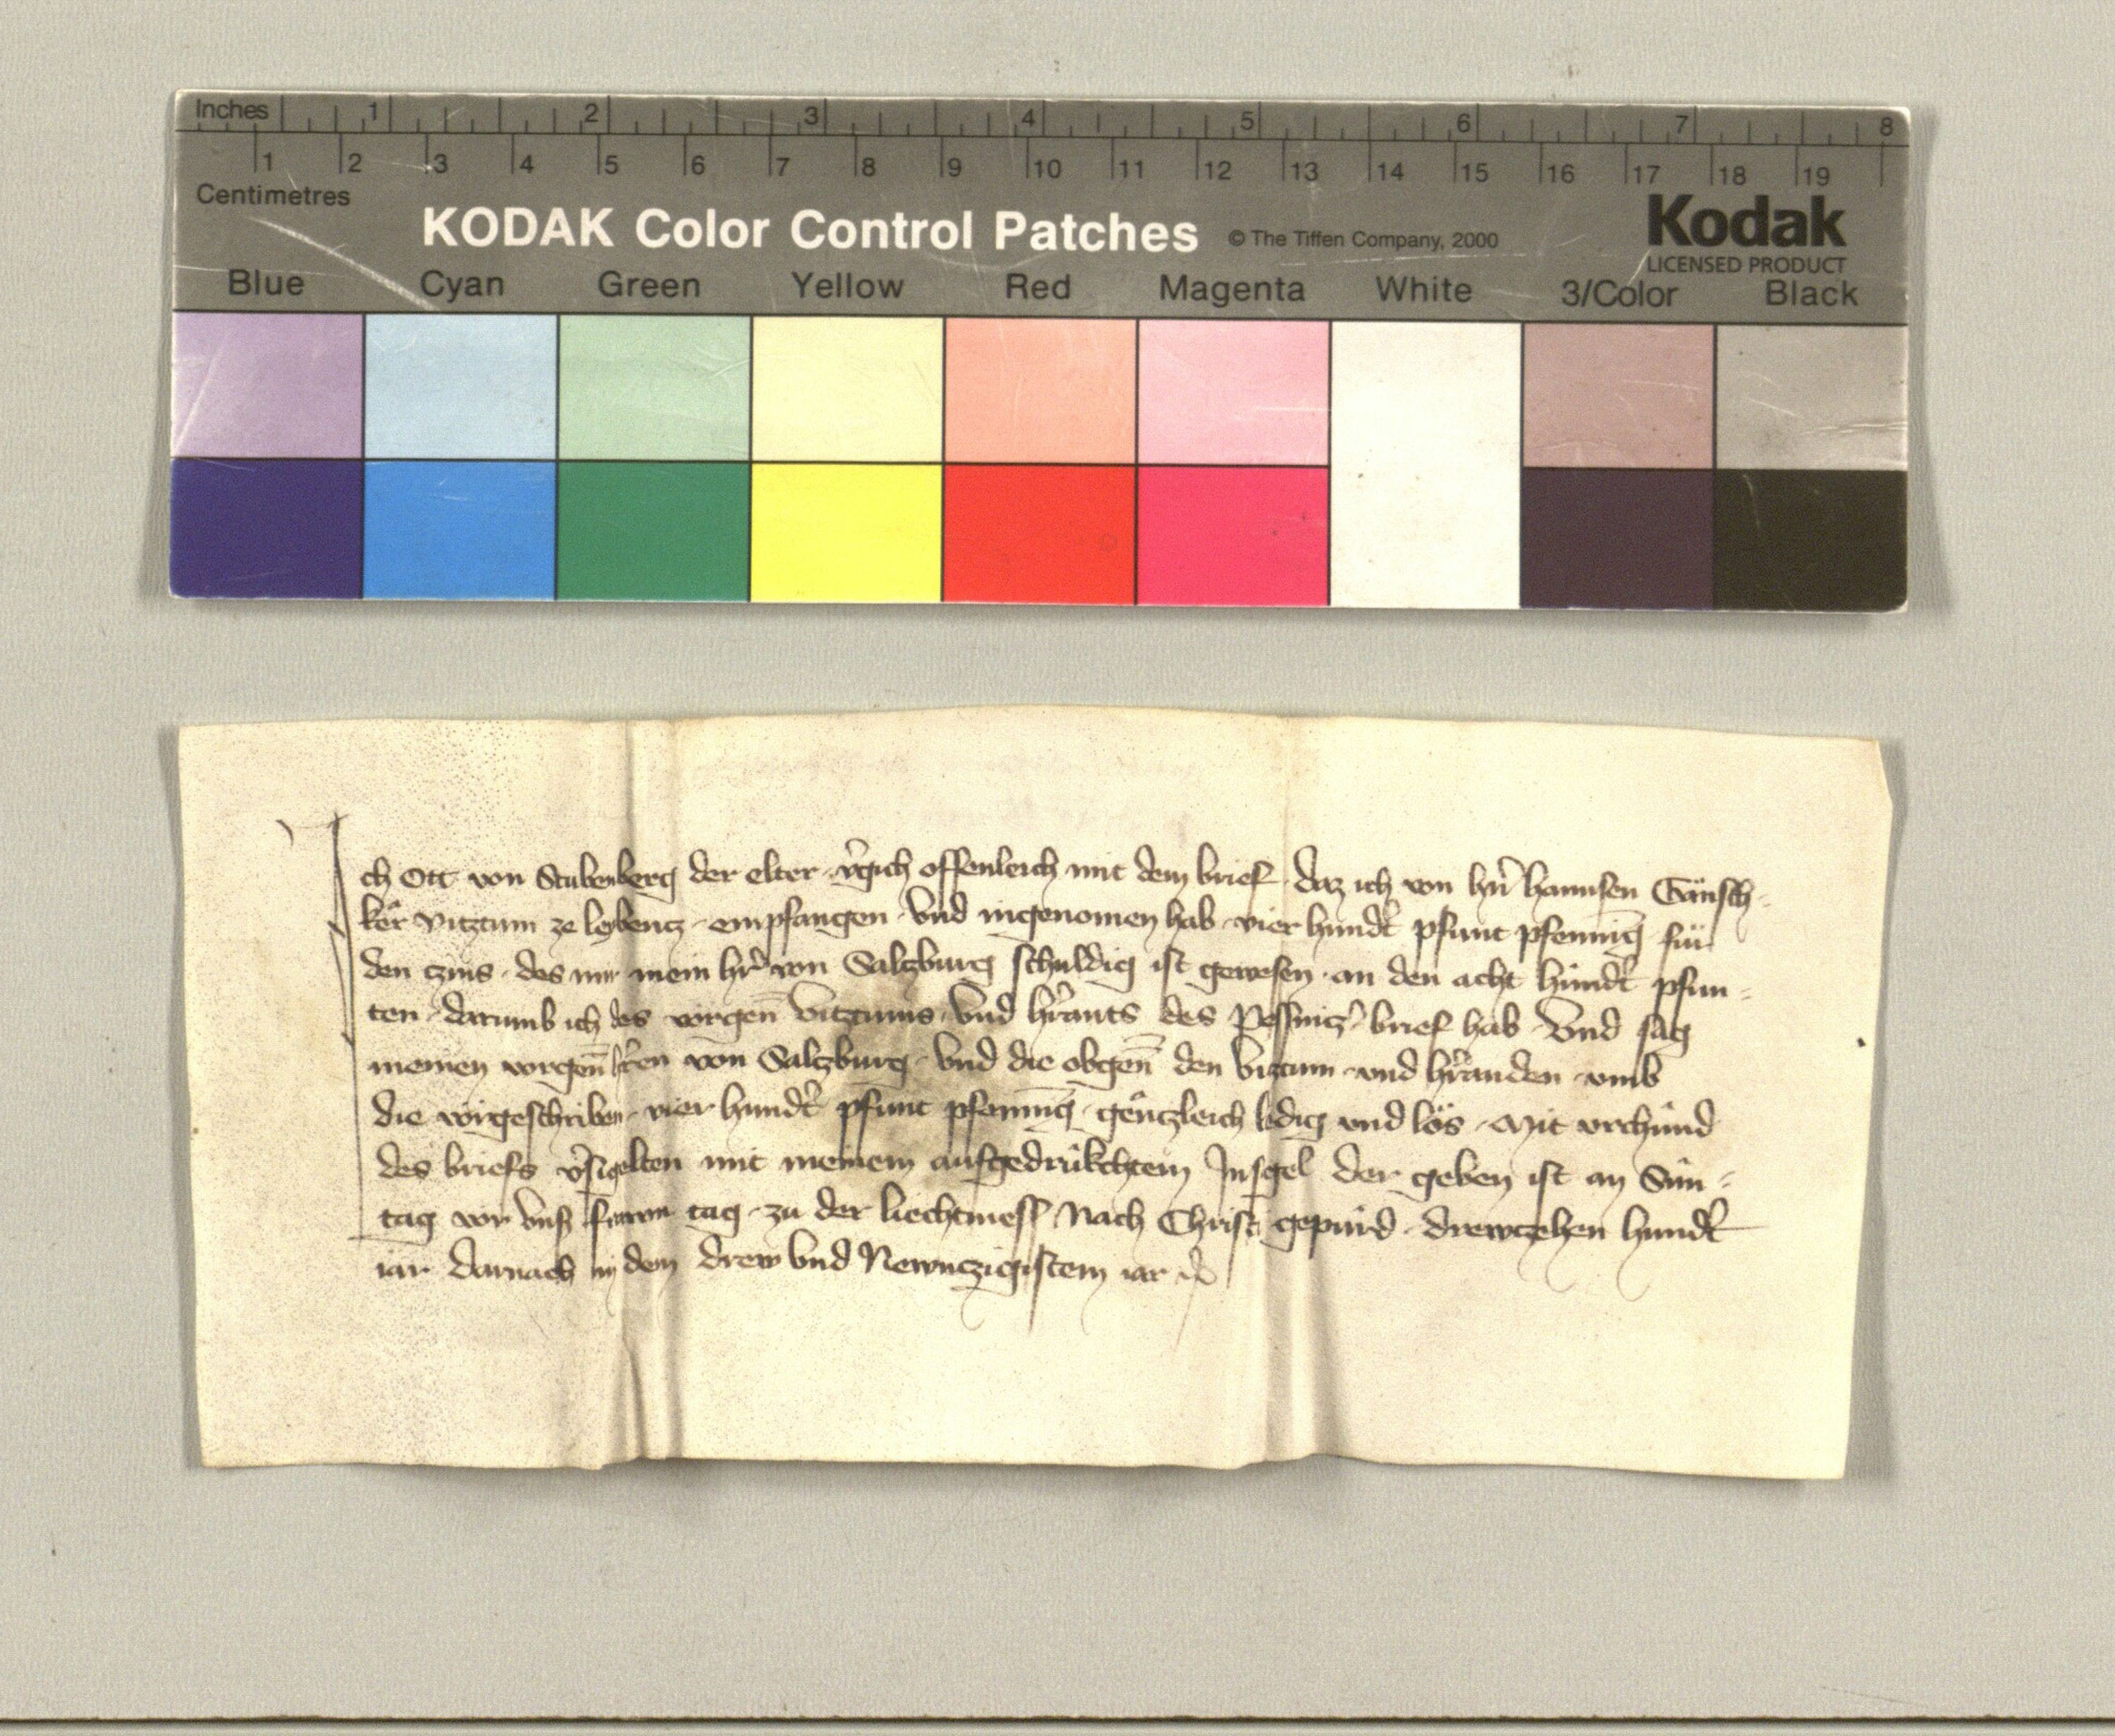 Inches 1 2 3 4 5 6 7 8
1 2 3 4 5 6 7 8 9 10 11 12 13 14 15 16 17 18 19
Centimetres
KODAK Color Control Patches © The Tiffen Company, 2000 Kodak
LICENSED PRODUCT
Blue Cyan Green Yellow Red Magenta White 3/Color Black
Ich Ott von Stubenberg der elter v̉gich offenleich mit dem brief daz ich von hn̉ hannsen Gänsch-
kër vitztum ze leybencz empfangen vnd ingenomen hab vier hundt̉ pfunt pfenninḡ für
den czins des mir mein hr̉ von Salczburg schuldig ist gewesen an den acht hundt̉ pfun-
ten darumb ich des vorgen̄ vitztums vnd hr̉ants des Pessnicz̉ brief hab vnd sag
meinen vorgen̄ hr̉en von Salczburg vnd die obgen̄ den vitztum vnd hr̉anden vmb
die vorgeschriben vier hundt̉ pfunt pfenninḡ genczleich ledig vnd lös Mit vrchund
des briefs v̉sigelten mit meinem aufgedrukchtem Insigel der geben ist an Sun-
tag vor vnsr̉ frawn tag zu der liechtmess Nach Christi gepurd drewczehen hundt̉
iar darnach in dem drew vnd Newnczigistem iar